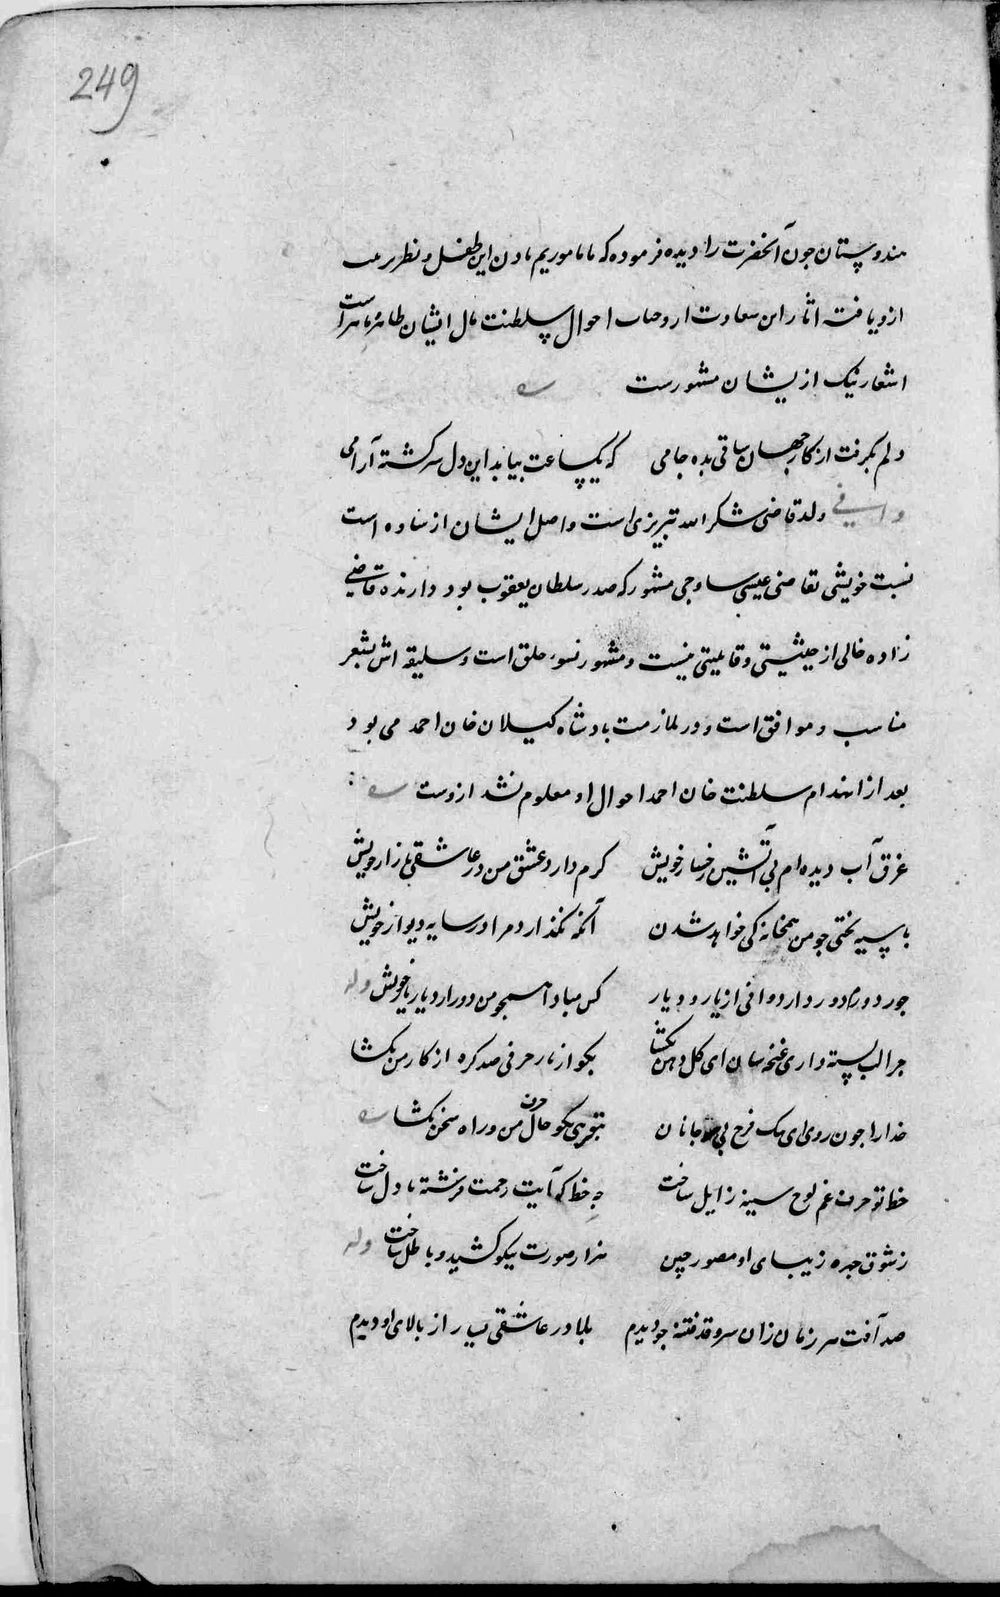 249
هندوستان چون آنحضرت را دیده فرموده که ما ماموریم بادن این طفل و نظر
ازو یافته آثار این سعادت احوال سلطنت مآل ایشان ظاهر است
اشعار نیک از یشان مشهورست
دلم بگرفت از کار جهان ساقی بده جامی که یکساعت بیابد این دل سرگشته آرامی
وافی ولد قاضی شکر الله تبریزی است و اصل ایشان از ساوه است
نسبت خویشی بقاضی عیسی ساوجی مشهور که صدر سلطان یعقوب بود دارنده قاضی
زاده خالی از حیثیتی و قابلیتی نیست و مشهور بسوء خلق است و سلیقه اش بشعر
مناسب و موافق است و در ملازمت بادشاه کیلان خان احمد می بود
بعد از انهدام سلطنت خان احمد احوال او معلوم نشد ازوست
غرق آب دیده ام بی آتشین رخسار خویش کرم دارد عشق من در عاشقی بازار خویش
با سیه بختی چو من همخانه کی خواهد شدن آنکه نگذارد مرا در سایه دیوار خویش
جور دوران دور دارد وافی از یار و دیار کس مبادا همچو من دور از دیار یار خویش وله
چرا لب بسته داری غنچه سان ای کل دهن بگشا بکو از ناز حرفی صد کره از کار من بگشا
خدارا چون روی ای پیک فرخ پی بر جانان بتقریبی بکو حال من و راه سخن بگشا
خط تو حرف غم لوح سینه زایل ساخت چه خط که آیت رحمت فرشته نازل ساخت
ز شوق چهره زیبای او مصور چین هزار صورت نیکو کشید و باطل ساخت وله
صد آفت هر زمان زان سرو قد فتنه جو دیدم بلبا در عاشقی بسیار از بالای او دیدم